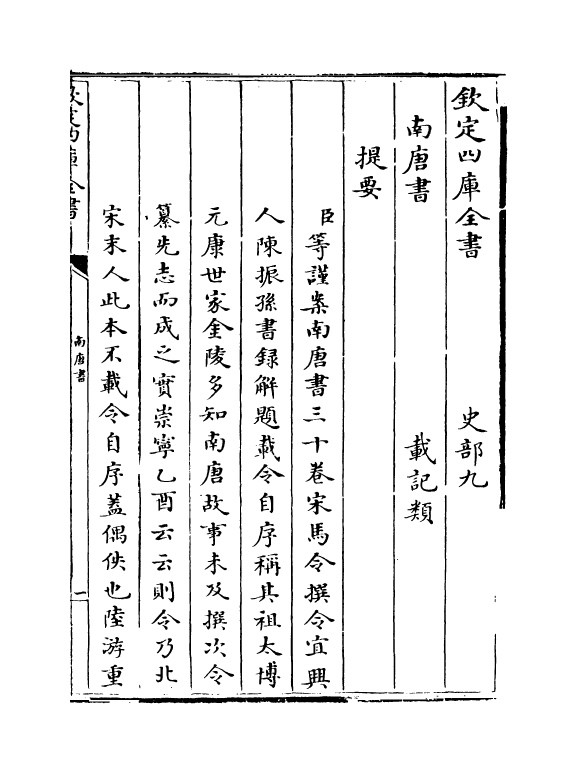 欽定四庫全書　史部九
南唐書　載記類
提要
臣等謹案南唐書三十卷宋馬令撰令宜興
人陳振孫書録解題載令自序稱其祖太博
元康世家金陵多知南唐故事未及撰次令
纂先志而成之實崇寧乙酉云云則令乃北
宋末人此本不載令自序蓋偶佚也陸游重
欽定四庫全書
南唐書
一